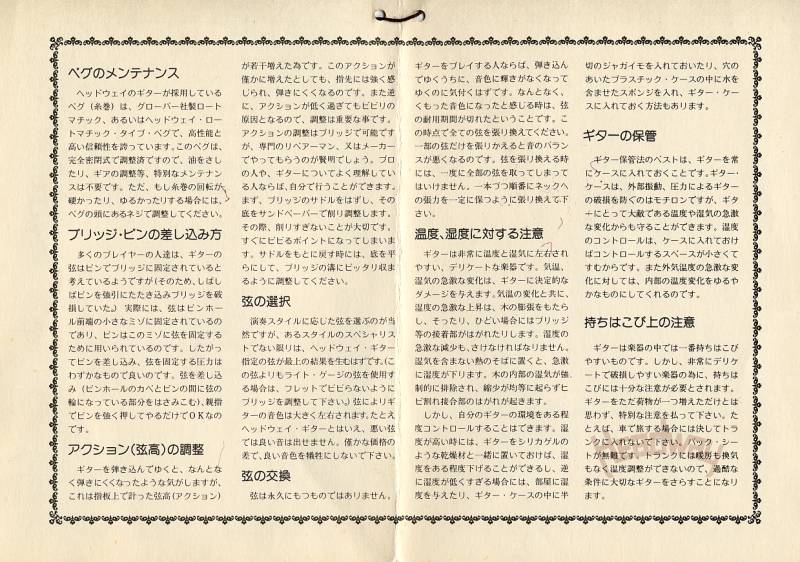 ペグのメンテナンス
ヘッドウェイのギターが採用している
ペグ(糸巻)は、グローバー社製ロート
マチック、あるいはヘッドウェイ・ロー
トマチック・タイプ・ペグで、高性能と
高い信頼性を誇っています。このペグは、
完全密閉式で調整済ですので、油をさし
たり、ギアの調整等、特別なメンテナン
スは不要です。ただ、もし糸巻の回転が
硬かったり、ゆるかったりする場合には、
ペグの頭にあるネジで調整してください。
ブリッジ・ピンの差し込み方
多くのプレイヤーの人達は、ギターの
弦はピンでブリッジに固定されていると
考えているようですが(そのため、しばし
ばピンを強引にたたき込みブリッジを破
損していた。) 実際には、弦はピンホー
ル前端の小さなミゾに固定されているの
であり、ピンはこのミゾに弦を固定する
ために用いられているのです。したがっ
てピンを差し込み、弦を固定する圧力は
わずかなもので良いのです。弦を差し込
み(ピンホールのカベとピンの間に弦の
輪になっている部分をはさみこむ)、親指
でピンを強く押してやるだけでOKなの
です。
アクション(弦高)の調整
ギターを弾き込んでゆくと、なんとな
く弾きにくくなったような気がしますが、
これは指板上で計った弦高(アクション)
が若干増えた為です。このアクションが
僅かに増えたとしても、指先には強く感
じられ、弾きにくくなるのです。また逆
に、アクションが低く過ぎてもビビリの
原因となるので、調整は重要な事です。
アクションの調整はブリッジで可能です
が、専門のリペアーマン、又はメーカー
でやってもらうのが賢明でしょう。プロ
の人や、ギターについてよく理解してい
る人ならば、自分で行うことができます。
まず、ブリッジのサドルをはずし、その
底をサンドペーパーで削り調整します。
その際、削りすぎないことが大切です。
すぐにビビるポイントになってしまいま
す。サドルをもとに戻す時には、底を平
らにして、ブリッジの溝にピッタリ収ま
るように調整してください。
弦の選択
演奏スタイルに応じた弦を選ぶのが当
然ですが、あるスタイルのスペシャリス
トでない限りは、ヘッドウェイ・ギター
指定の弦が最上の結果を生むはずです。(こ
の弦よりもライト・ゲージの弦を使用す
る場合は、フレットでビビらないように
ブリッジを調整して下さい。) 弦によりギ
ターの音色は大きく左右されます。たとえ
ヘッドウェイ・ギターとはいえ、悪い弦
では良い音は出せません。僅かな価格の
差で、良い音色を犠牲にしないで下さい。
弦の交換
弦は永久にもつものではありません。
ギターをプレイする人ならば、弾き込ん
でゆくうちに、音色に輝きがなくなって
ゆくのに気付くはずです。なんとなく、
くもった音色になったと感じる時は、弦
の耐用期間が切れたということです。こ
の時点で全ての弦を張り換えてください。
一部の弦だけを張りかえると音のバラン
スが悪くなるのです。弦を張り換える時
には、一度に全部の弦を取ってしまって
はいけません。一本づつ順番にネックへ
の張力を一定に保つように張り換えて下
さい。
温度、湿度に対する注意
ギターは非常に温度と湿気に左右され
やすい、デリケートな楽器です。気温、
湿気の急激な変化は、ギターに決定的な
ダメージを与えます。気温の変化と共に、
湿度の急激な上昇は、木の膨張をもたら
し、そったり、ひどい場合にはブリッジ
等の接着部がはがれたりします。湿度の
急激な減少も、さけなければなりません。
湿気を含まない熱のそばに置くと、急激
に湿度が下ります。木の内部の湿気が強
制的に排除され、縮少が均等に起らずヒ
ビ割れ接合部のはがれが起きます。
しかし、自分のギターの環境をある程
度コントロールすることはできます。湿
度が高い時には、ギターをシリカゲルの
ような乾燥材と一緒に置いておけば、湿
度をある程度下げることができるし、逆
に湿度が低くすぎる場合には、部屋に湿
度を与えたり、ギター・ケースの中に半
切のジャガイモを入れておいたり、穴の
あいたプラスチック・ケースの中に水を
含ませたスポンジを入れ、ギター・ケー
スに入れておく方法もあります。
ギターの保管
ギター保管法のベストは、ギターを常
にケースに入れておくことです。ギター・
ケースは、外部振動、圧力によるギター
の破損を防ぐのはモチロンですが、ギタ
ーにとって大敵である温度や湿気の急激
な変化からも守ることができます。湿度
のコントロールは、ケースに入れておけ
ばコントロールするスペースが小さくて
すむからです。また外気温度の急激な変
化に対しては、内部の温度変化をゆるや
かなものにしてくれるのです。
持ちはこび上の注意
ギターは楽器の中では一番持ちはこび
やすいものです。しかし、非常にデリケ
ートで破損しやすい楽器の為に、持ちは
こびには十分な注意が必要とされます。
ギターをただ荷物が一つ増えただけとは
思わず、特別な注意を払って下さい。た
とえば、車で旅する場合には決してトラ
ンクに入れないで下さい。バック・シー
トが無難です。トランクには暖房も換気
もなく温度調整ができないので、過酷な
条件に大切なギターをさらすことになり
ます。